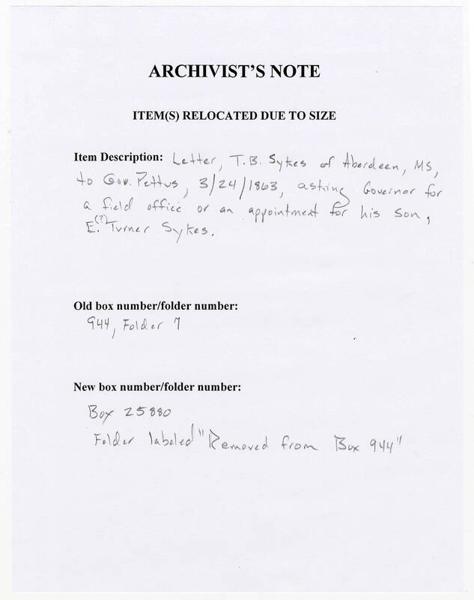 ARCHIVIST'S NOTE
ITEM(S) RELOCATED DUE TO SIZE
Item Description: Letter, T.B. Sykes of Aberdeen, MS,
to Gov. Pettus, 3/24/1863, asking Governor for
a field office or an appointment for his son,
E.(?) Turner Sykes.
Old box number/folder number:
944, Folder 7
New box number/folder number:
Box 25880
Folder labeled "Removed from Box 944"